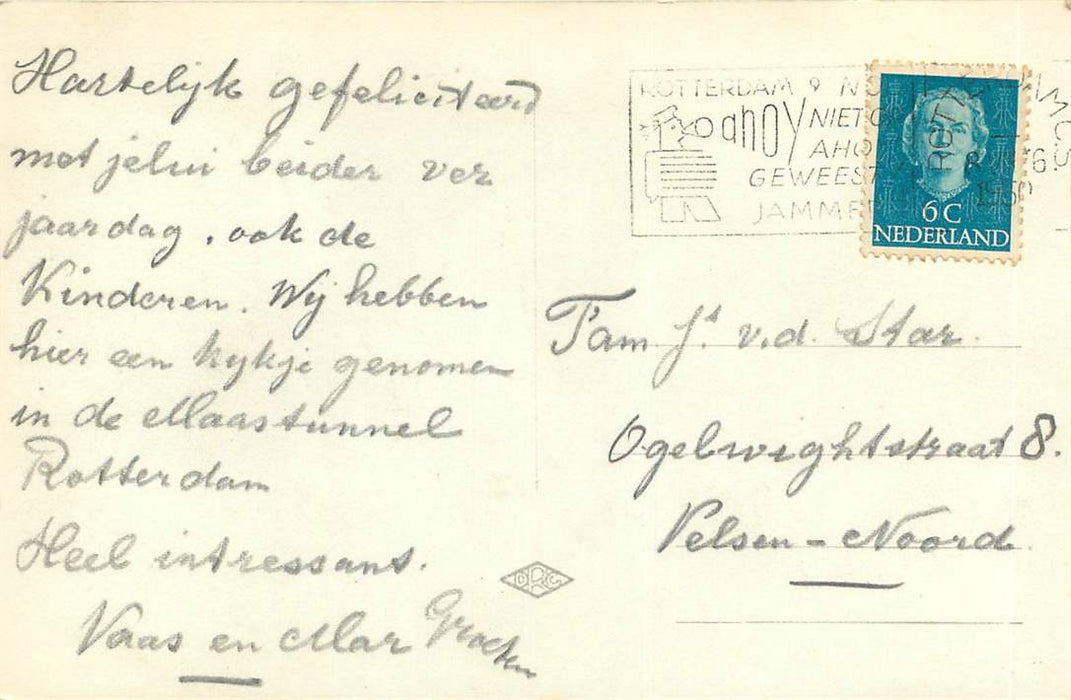 Hartelijk gefeliciteerd
met jelui beider ver
jaardag, ook de
Kinderen. Wij hebben
hier een kykje genomen
in de Maastunnel
Rotterdam
Heel intressant.
Vaas en Mar Groeten
ROTTERDAM 9
ahoy
NIET
AHO
GEWEEST
JAMME
1950
6C
NEDERLAND
Fam Jt. v.d. Star.
Ogelwightstraat 8.
Velsen-Noord
DRC